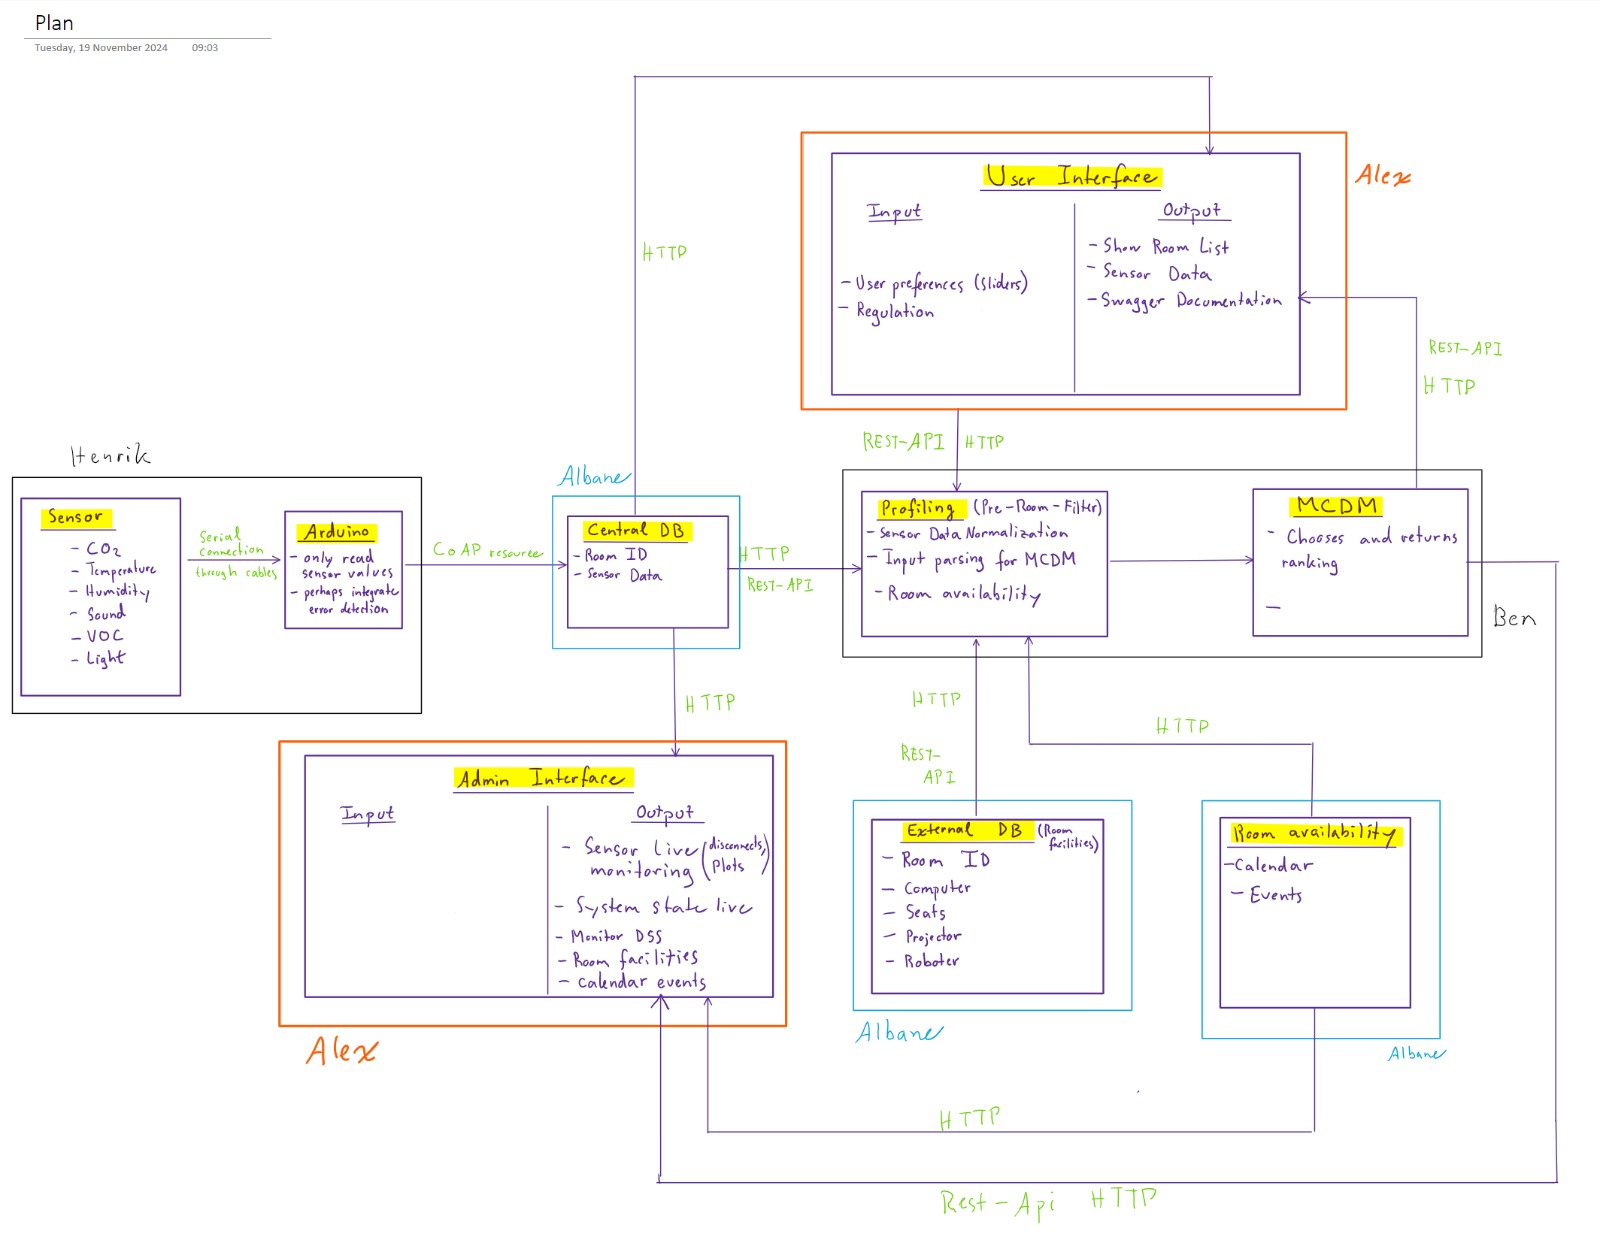 Plan
Tuesday, 19 November 2024 09:03
HTTP
User Interface
Alex
Input
Output
- User preferences (Sliders)
- Regulation
- Show Room List
- Sensor Data
- Swagger Documentation
REST-API
HTTP
REST-API HTTP
Henrik
Sensor
- CO2
- Temperature
- Humidity
- Sound
- VOC
- Light
Serial
connection
through cables
Arduino
- only read
sensor values
- perhaps integrate
error detection
CoAP resource
Albane
Central DB
- Room ID
- Sensor Data
HTTP
REST-API
Profiling (Pre-Room-Filter)
- Sensor Data Normalization
- Input parsing for MCDM
- Room availability
MCDM
- Chooses and returns
ranking
-
Ben
HTTP
Admin Interface
Input
Output
- Sensor Live
monitoring
(disconnects,
Plots)
- System state live
- Monitor DSS
- Room facilities
- Calendar events
Alex
HTTP
REST-
API
External DB (Room
facilities)
- Room ID
- Computer
- Seats
- Projector
- Roboter
Albane
HTTP
Room availability
- Calendar
- Events
Albane
HTTP
Rest-Api HTTP